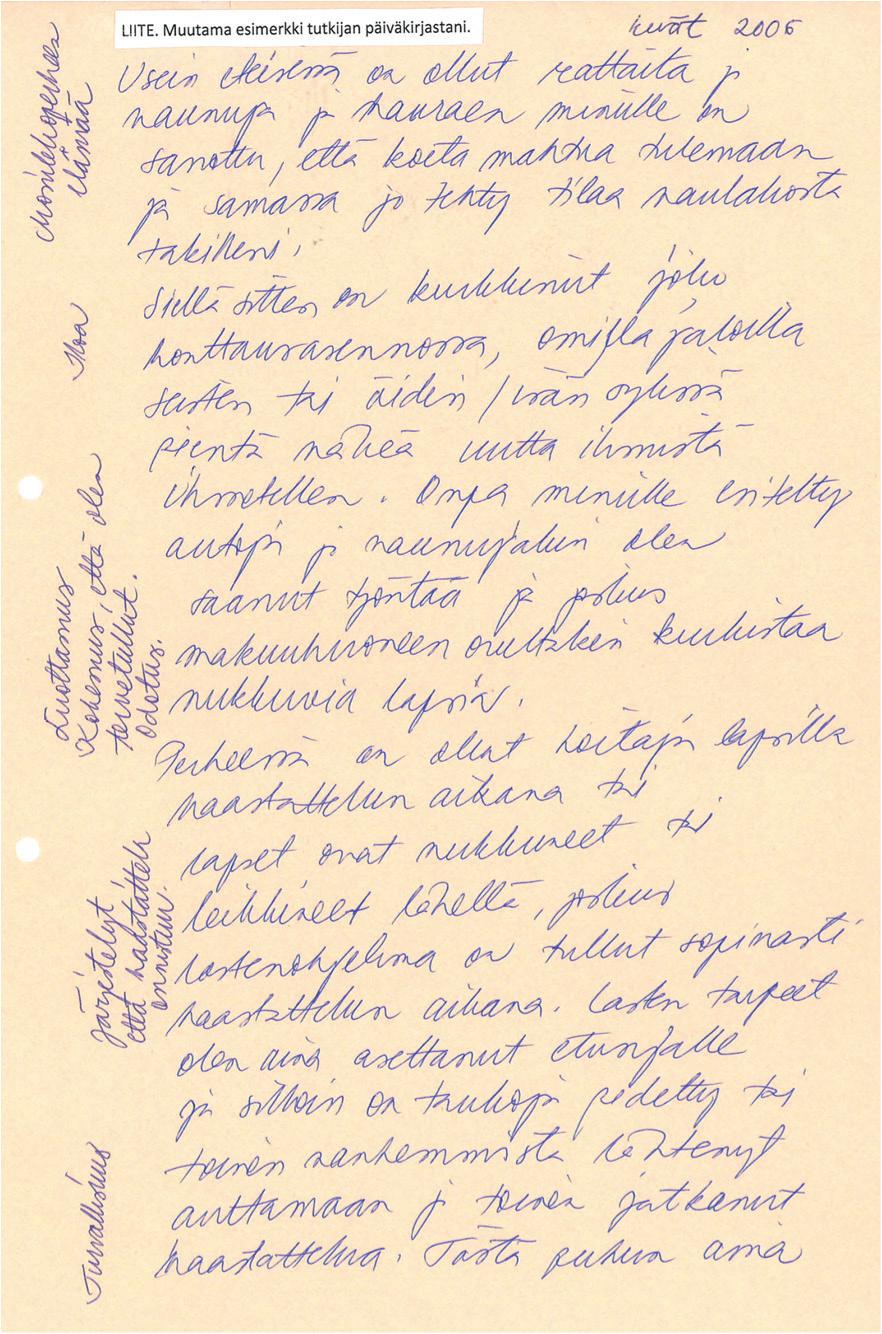 LIITE. Muutama esimerkki tutkijan päiväkirjastani.
kevät 2006
Usein eteisessä on ollut rattaita ja
vaunuja ja nauraen minulle on
sanottu, että koeta mahtua tulemaan
ja samassa jo tehty tilaa naulakosta
takilleni.
Siellä sitten on kurkkinut joku
konttausasennossa, omilla jaloilla
seisten tai äidin / isän sylissä
pientä väkeä uutta ihmistä
ihmetellen. Onpa minulle esitelty
autoja ja vaunujakin olen
saanut työntää ja joskus
makuuhuoneen oveltakin kurkistaa
nukkuvia lapsia.
Perheessä on ollut hoitaja lapsilla
haastattelun aikana tai
lapset ovat nukkuneet tai
leikkineet lähellä, joskus
lastenohjelma on tullut sopivasti
haastattelun aikana. Lasten tarpeet
olen aina asettanut etusijalle
ja silloin on taukoja pidetty tai
toinen vanhemmista lähtenyt
auttamaan ja toinen jatkanut
haastattelua. Tästä puhun aina
Monilapsiperheen
elämää
Iloa
Luottamus
Kokemus, että olen
tervetullut.
Odotus.
Järjestelyt,
että haastattelu
onnistuu.
Turvallisuus